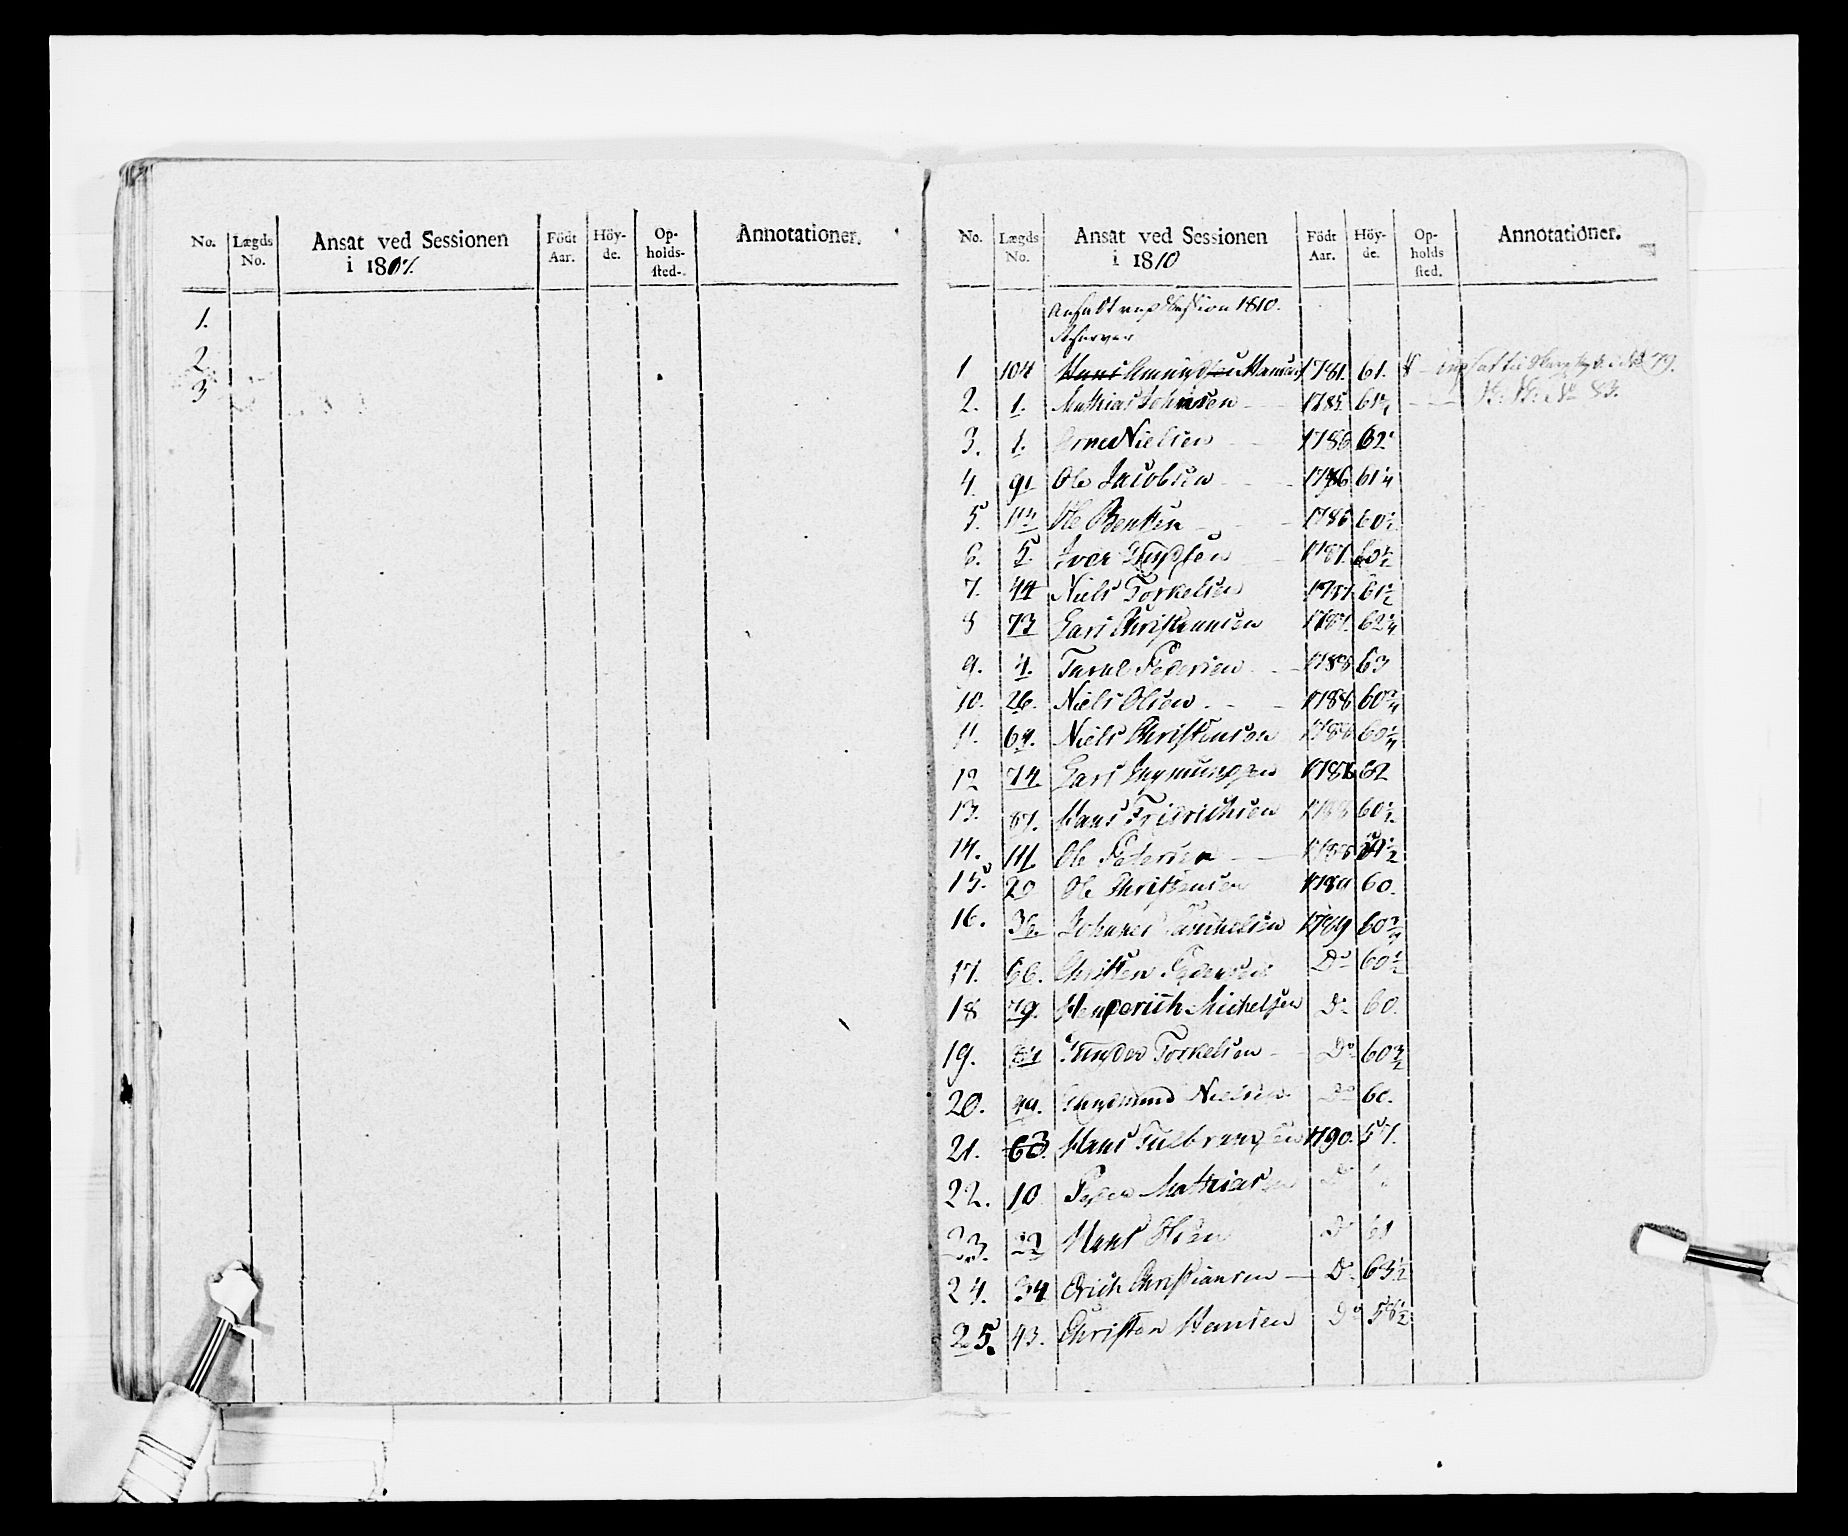 No. Lægds No. Ansat ved Sessionen i 180 Födt Aar. Höy-de. Op-holds-sted. Annotationer.
1.
2.
3
No. Lægds No. Ansat ved Sessionen i 1810 Födt Aar. Höy-de. Op-holds sted. Annotationer.
Ansadt Session 1810.
Reserver
1 104 Hans Amund Hansen 1781. 61. 79.
2. 1. Mathias Johnsen 1785 61½ 83.
3. 1. Arne Nielsen 1786 62
4. 91 Ole Jacobsen 1786 61¼
5. Ole Bentsen 1786 60½
6. 5 Iver Knudsen 1787. 60½
7. 44 Niels Torkelsen 1787 61½
8 73 Lars Christiansen 1787. 62¼
9. 4. Taral Pedersen 1788 63
10. 26. Niels Olsen 1788 60¾
11. 64. Niels Christensen 1788 60¼
12 74. Lars Ingmundsen 1788 62
13. 87. Hans Fridrichsen 1788 60½
14. 111. Ole Pedersen 1788
15. 20 Ole Christensen 1789 60.
16. 36. Johannes 1789 60¾
17. 66. Christen Pedersen Do 60½
18 79. Henderich Michelsen Do 60.
19. 84 Gunder Torkelsen Do 60
20. Nielsen Do 60.
21. 63. Hans Gulbrandsen 1790. 57.
22. 10 Peder Mathiasen Do
23. 22 Hans Olsen Do 61
24. 34 Erich Christiansen Do. 63½
25. 43. Christen Hansen Do 58½